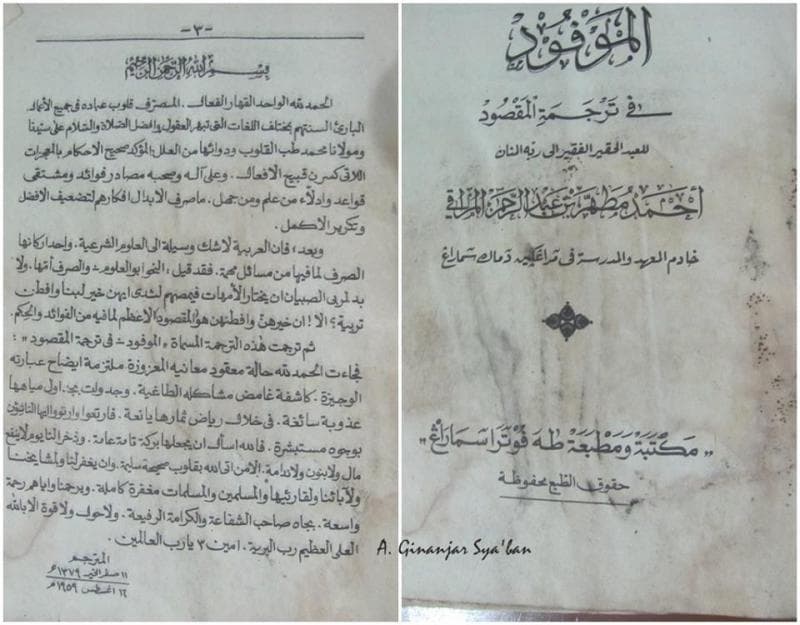 -٣-
بسم الله الرحمن الرحيم
الحمد لله الواحد القهار الفعال. المصرف قلوب عباده فى جميع الأعمال
البارئ السنتهم بختلف اللغات التى تبهر العقول وافضل الصلاة والسلام على سيدنا
ومولانا محمد طب القلوب ودوائها من العلل؛ المؤكد صحيح الاحكام بالمعجزات
اللاتى كسرن قبيح الافعال. وعلى آله وصحبه مصادر فوائد ومشتقى
قواعد وادلاء من علم ومن جهل. ماصرف الابدال افكارهم لتضعيف الافضل
وتكرير الاكمل.
وبعد؛ فان العربية لاشك وسيلة الى العلوم الشرعية. واحد اركانها
الصرف لما فيها من مسائل مهمة. فقد قيل، النحو ابو العلوم، والصرف أمها. ولا
بد لمربى الصبيان ان يختار الأمهات فيمصهم لثدى ايهن خير لبنا وافطن
تربية؟ ألا! ان خيرهن وافطنهن هو المقصود الأعظم لما فيه من الفوائد والحكم.
ثم ترجمت هذه الترجمة المسماة „الموفود“ فى ترجمة المقصود„:
فجاءت الحمد لله حالة معقود معانيه المعزوزة ملتزمة ايضاح عبارته
الوجيزة. كاشفة غامض مشاكله الطاغية. وجدولت بجداول مياهها
عذوبة سائغة. فى خلال رياض ثمارها يانعة. فارتعوا وارتووا اليها الناشؤن
بوجوه مستبشرة. فالله اسأل ان يجعلها بركة تامة عامة. وذخر النا يوم لاينفع
مال ولا بنون ولا ندامة. الا من اتى الله بقلوب صحيحة سليمة. وان يغفر لنا ولمشايخنا
ولآبائنا ولقارئيها والمسلمين والمسلمات مغفرة كاملة. ويرحمنا واياهم رحمة
واسعة. بجاه صاحب الشفاعة والكرامة الرفيعة. ولاحول ولاقوة الا بالله
العلى العظيم رب البرية. امين ٣ يارب العالمين.
المترجم
١١ صفر الخير ١٣٧٩ هـ
١٦ اغسطس ١٩٥٩ م
الموفود
فى ترجمة المقصود
للعبد الحقير الفقير الى ربه المنان
أحمد مطهر بن عبد الرحمن المراقي
خادم المعهد والمدرسة فى مراغكين دماك سماراغ
„مكتبة ومطبعة طه فوترا سماراغ„
حقوق الطبع محفوظة
A. Ginanjar Sya'ban